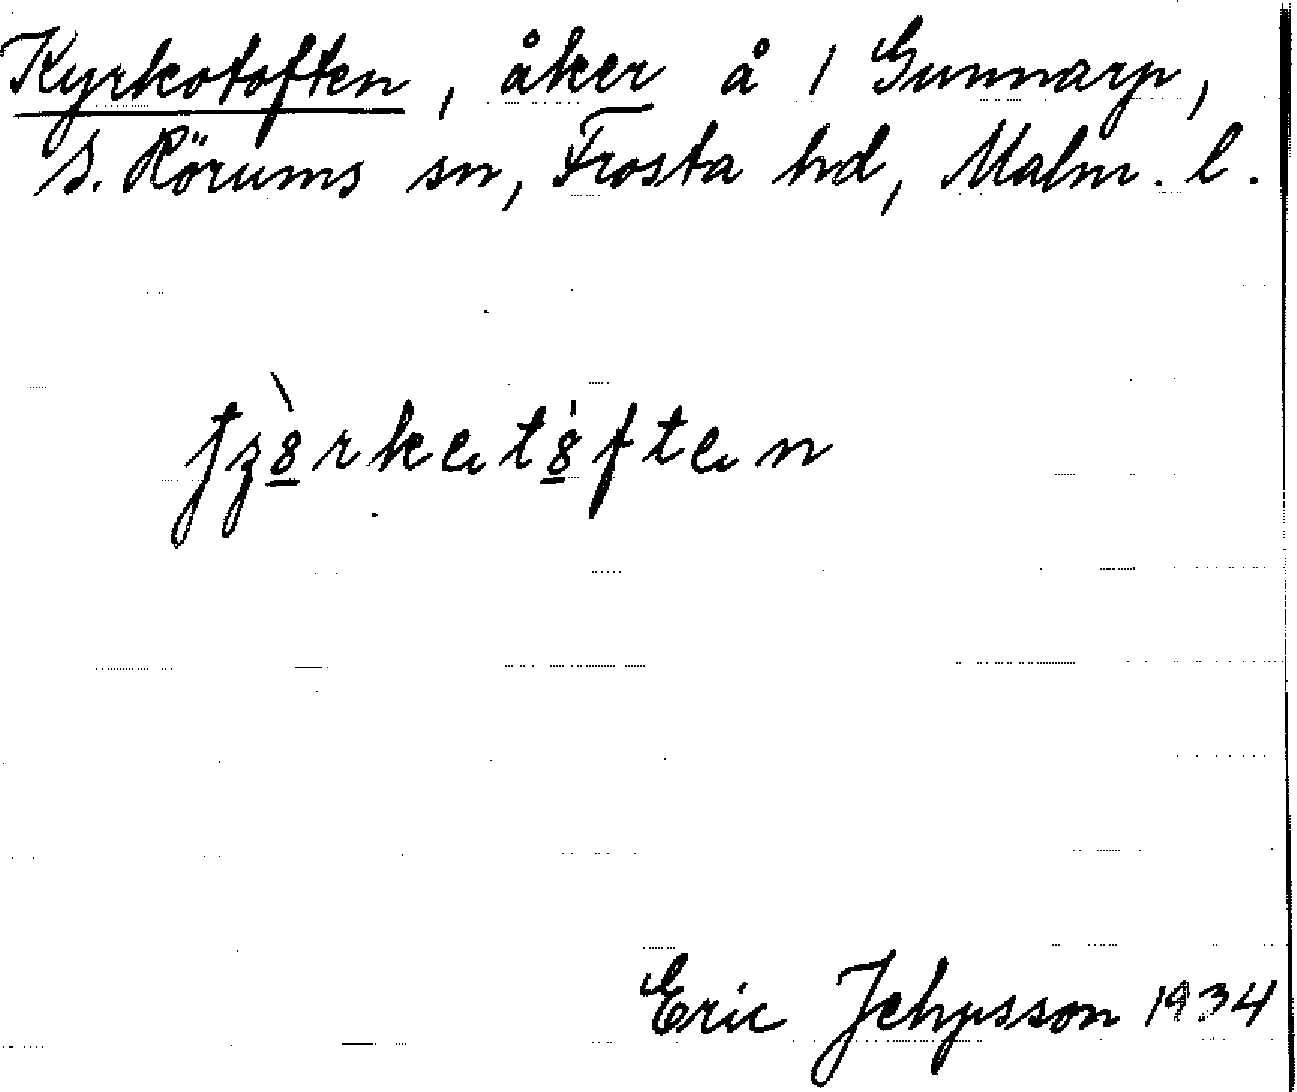 Kyrkotoften, åker å 1 Gunnarp,
S. Rörums sn, Frosta hd, Malm. l.
Eric Jehpsson 1934